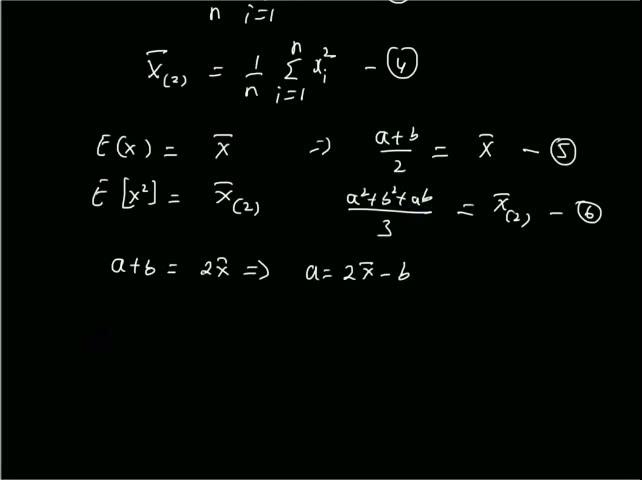 n i=1
x̄₍₂₎ = 1/n Σ_{i=1}^{n} xᵢ² - ④
E(x) = x̄ => (a+b)/2 = x̄ - ⑤
E[x²] = x̄₍₂₎ (a²+b²+ab)/3 = x̄₍₂₎ - ⑥
a+b = 2x̄ => a = 2x̄ - b